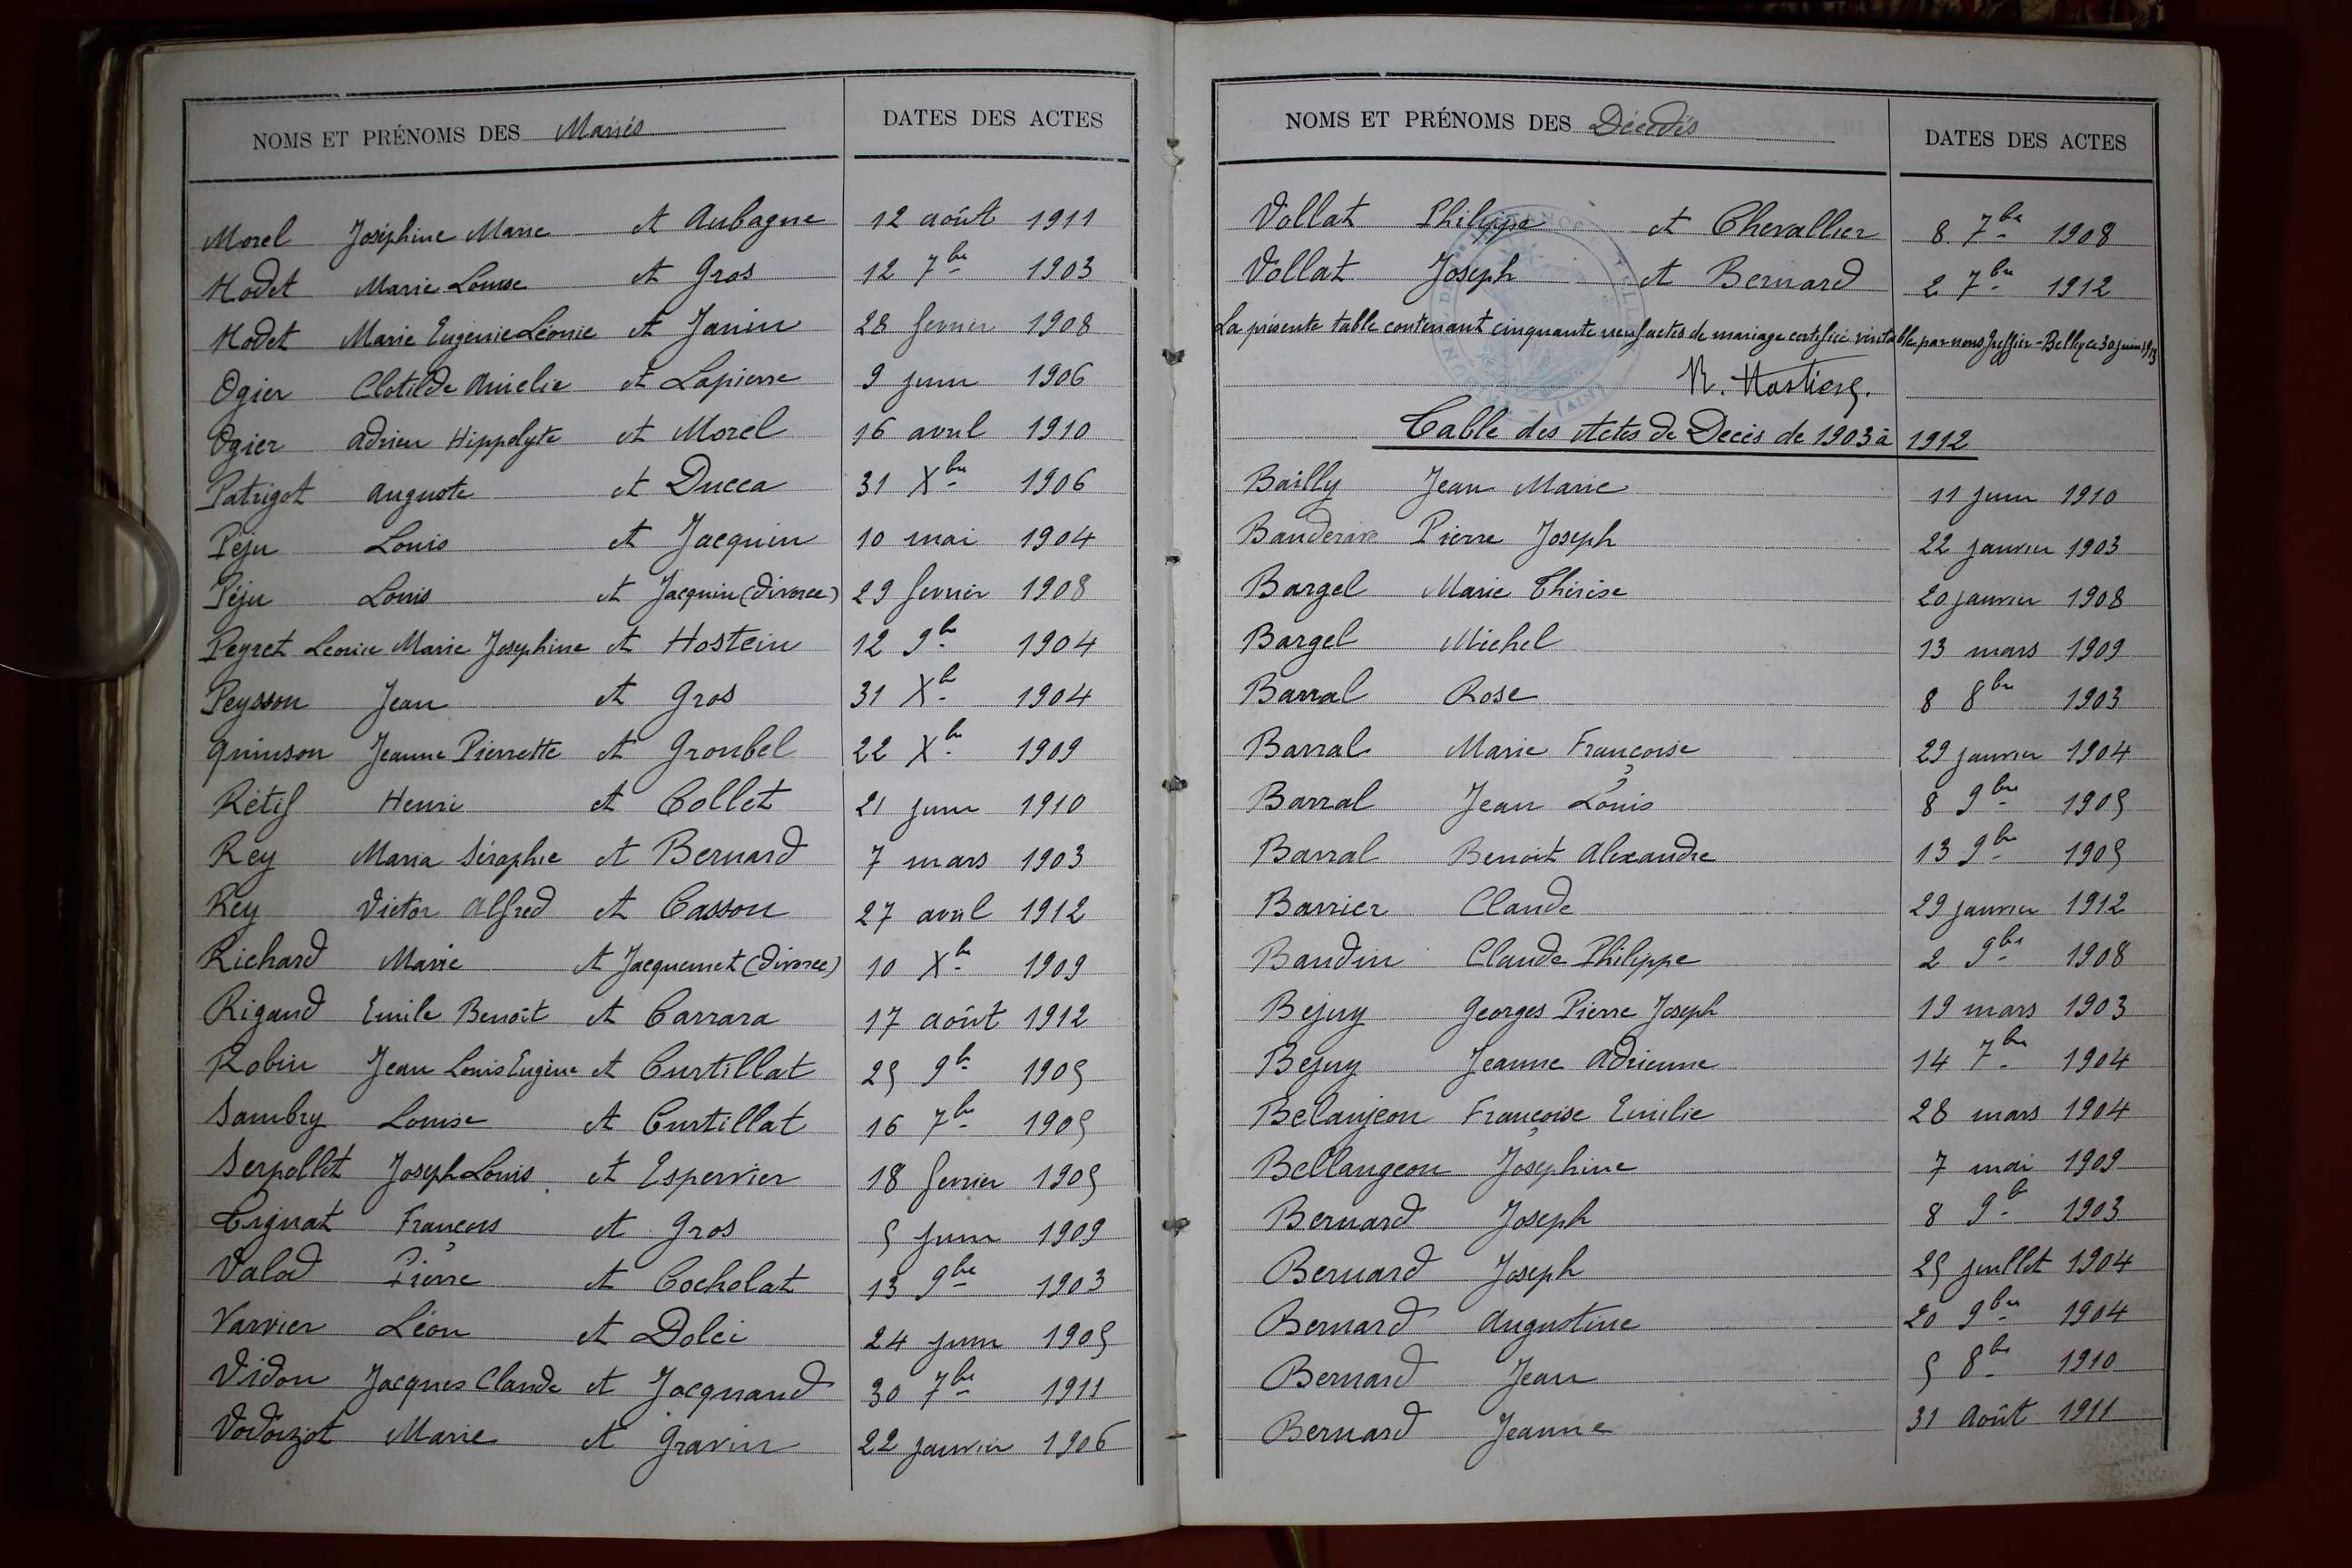 NOMS ET PRÉNOMS DES Mariés DATES DES ACTES
Morel Joséphine Marie et Aubagne 12 août 1911
Nodet Marie Louise et Gros 12 7bre 1903
Nodet Marie Eugenie Léonie et Janin 28 fevrier 1908
Ogier Clotilde Amelie et Lapierre 9 juin 1906
Ogier Adrien Hippolyte et Morel 16 avril 1910
Patrigot Auguste et Ducca 31 Xbre 1906
Péju Louis et Jacquin 10 mai 1904
Péju Louis et Jacquin (divorce) 29 fevrier 1908
Peyret Leonie Marie Josephine et Hostein 12 9bre 1904
Peysson Jean et Gros 31 Xbre 1904
Quinson Jeanne Pierrette et Groubel 22 Xbre 1909
Rétif Henri et Collet 21 juin 1910
Rey Maria Séraphie et Bernard 7 mars 1903
Rey Victor Alfred et Casson 27 avril 1912
Richard Marie et Jacquemet (divorce) 10 Xbre 1909
Rigaud Emile Benoît et Carrara 17 août 1912
Robin Jean Louis Eugène et Curtillat 25 9bre 1905
Sambry Louise et Curtillat 16 7bre 1905
Serpollet Joseph Louis et Espervier 18 fevrier 1905
Tignat François et Gros 5 juin 1909
Valod Pierre et Cocholat 13 9bre 1903
Varvier Léon et Dolci 24 juin 1905
Vidon Jacques Claude et Jacquand 30 7bre 1911
Vodoizot Marie et Gravin 22 janvier 1906
NOMS ET PRÉNOMS DES Décédés DATES DES ACTES
Vollat Philippe et Chevallier 8 7bre 1908
Vollat Joseph et Bernard 2 7bre 1912
La présente table contenant cinquante neuf actes de mariage certifiée véritable par nous Greffier - Belley ce 30 juin 1913
Table des Actes de Decès de 1903 à 1912
Bailly Jean Marie 11 juin 1910
Banderier Pierre Joseph 22 janvier 1903
Bargel Marie Thérèse 20 janvier 1908
Bargel Michel 13 mars 1909
Barral Rose 8 8bre 1903
Barral Marie Françoise 29 janvier 1904
Barral Jean Louis 8 9bre 1905
Barral Benoit Alexandre 13 9bre 1905
Barrier Claude 29 janvier 1912
Baudin Claude Philippe 2 9bre 1908
Bejuy Georges Pierre Joseph 19 mars 1903
Bejuy Jeanne Adrienne 14 7bre 1904
Belanjeon Françoise Emilie 28 mars 1904
Bellangeon Josephine 7 mai 1909
Bernard Joseph 8 9bre 1903
Bernard Joseph 25 juillet 1904
Bernard Augustine 20 9bre 1904
Bernard Jean 5 8bre 1910
Bernard Jeanne 31 Août 1911